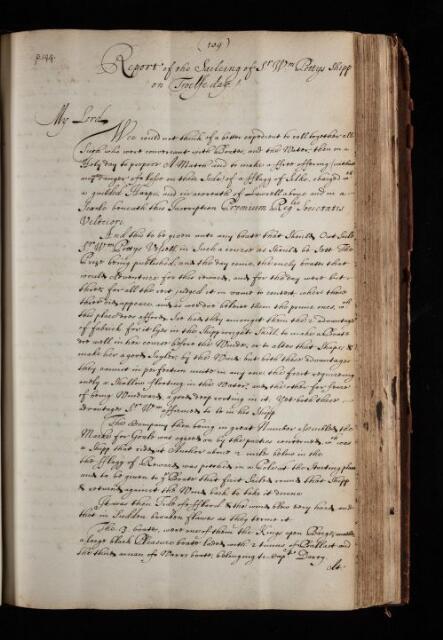 (109)
p.144.
Report of the Saileing of Sr. Wm Pettys Shipp
on Twelfe day.
My Lord
Wee could not think of a better expedient to call together all
Such who were conversant with Boates, and the Water, then on a
Holy day to propose A Match, and to make a free offering (without
any danger of a losse on there Side) of a Flagg of Silke, charged wth
a guilded Harpe, and in a wreath of Lawrell above and in a
Scrole beneath this Inscription Premium Regiæ Societatis
Velociori.
And this to be given unto any boate that Should Out Saile
Sr Wm Pettys Vessell, in Such a course as Should be Sett. The
Prize being published, and the day come, the onely boates that
would adventure for this reward, and for the day were but
three, for all the rest judged it in vaine to contest, where these
three did appeare, and as wee doe beleive them the prime ones, wch
the place does afford. Soe had they amongst them the 2 advantages
of fabrick for it lyes in the Shippwrights Skill to make a Boate
doe well in her course before the Winde, or to alter that Shape, &
make her a good Sayler, by the Wind, but both these advantages
they cannot in perfection unite in any one, the first requireing
onely a Shallow floating in the Water, and the other for feare
of being Wind-ward, a good deep rooting in it. Yet both these
advantages Sr Wm affirmed to be in his Shipp.
The Company then being in great Number assembled, the
Marke for Goale was agreed on by the parties concerned, wch was
a Shipp that rides at Anchor about 2 miles below in the
the Flagg of Reward was pitched in a Cole at the Starting place
and to be given to ye Boate that first Sailed round that Shipp
& returned against the Wind back to take it downe.
It was then Tide of Flood & the wind blew very hard, and
that in Sudden broaken flawes as they terme it.
The 3 boates, were one of them the Kings open Barge, another
a large black Pleasure boate laded with 2 tunns of Ballast and
the third a man of Warrs boate, belonging to Capt Darcy.